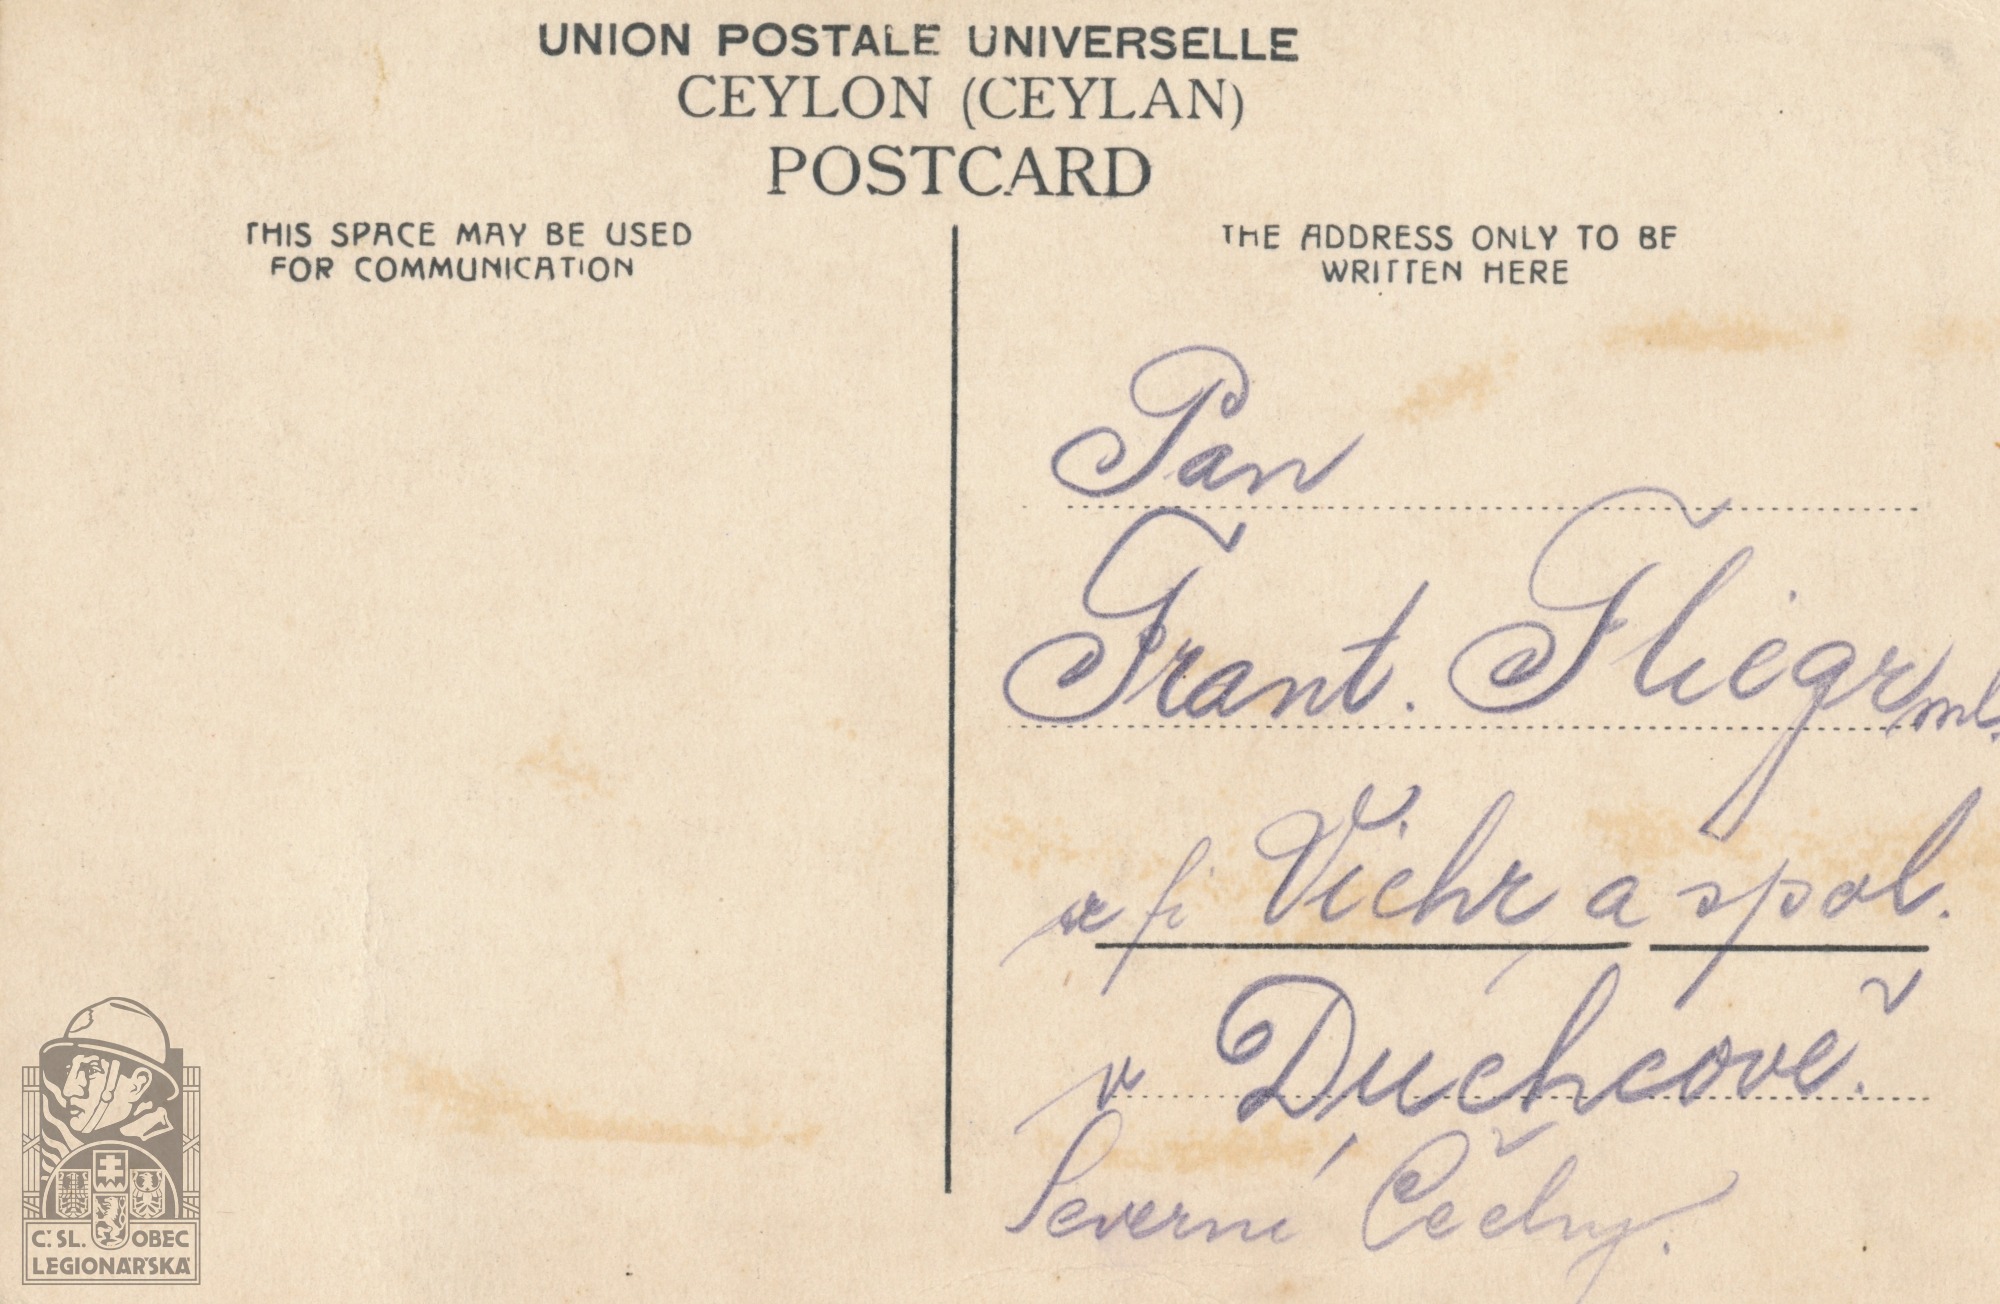 UNION POSTALE UNIVERSELLE
CEYLON (CEYLAN)
POSTCARD
THIS SPACE MAY BE USED
FOR COMMUNICATION
THE ADDRESS ONLY TO BE
WRITTEN HERE
Pan
Frant. Fliegr ml.
fi Vichr a spol.
v Duchcově.
Severní Čechy.
Č. SL. OBEC
LEGIONÁŘSKÁ